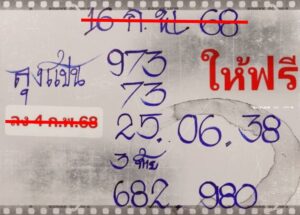 16 ก.พ 68
ลุงแป๋น 973
73
ให้ฟรี
ลง 4 ก.พ.68
25. 06. 38
3 ตัว
682. 980